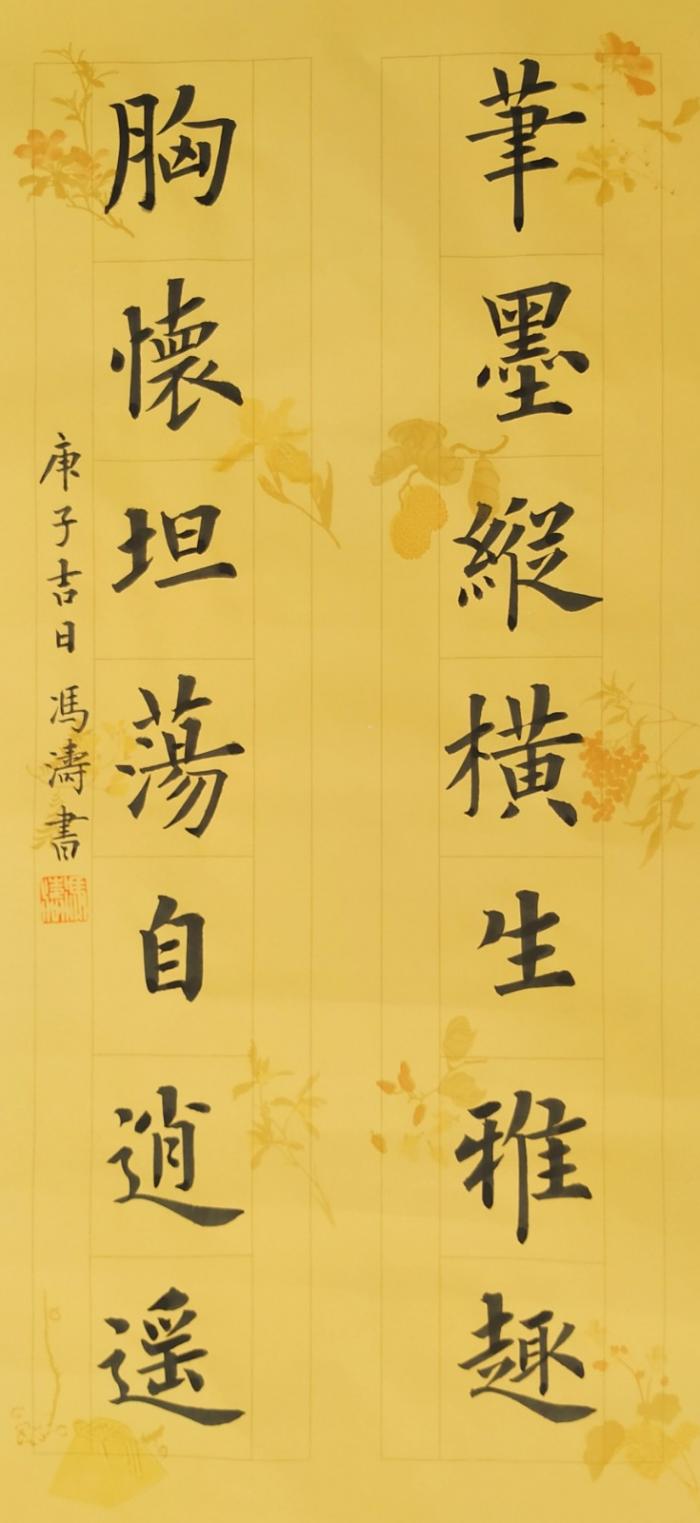 筆墨縱橫生雅趣
胸懷坦蕩自逍遥
庚子吉日 馮濤書
馮濤